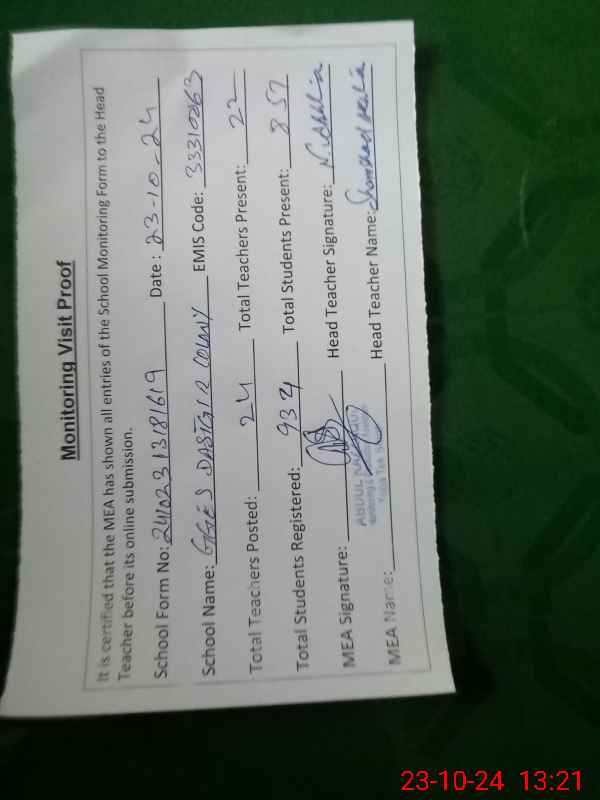 Monitoring Visit Proof
It is certified that the MEA has shown all entries of the School Monitoring Form to the Head
Teacher before its online submission.
School Form No: 24102313181619 Date : 23-10-24
School Name: GGES DASTGIR COLONY EMIS Code: 33310263
Total Teachers Posted: 24 Total Teachers Present: 22
Total Students Registered: 934 Total Students Present: 857
MEA Signature: Head Teacher Signature:
ABDUL
MEA Name: Head Teacher Name:
23-10-24 13:21